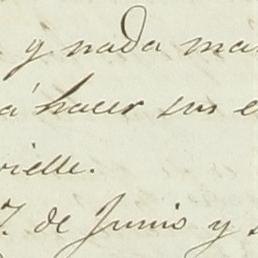 y nada ma
á hacer sus e
rielle.
7. de Junio y s